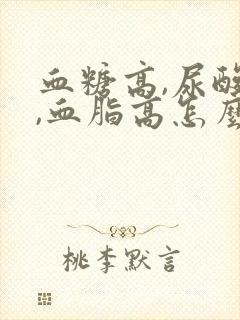 血糖高,尿酸
,血脂高怎麼
桃李默言